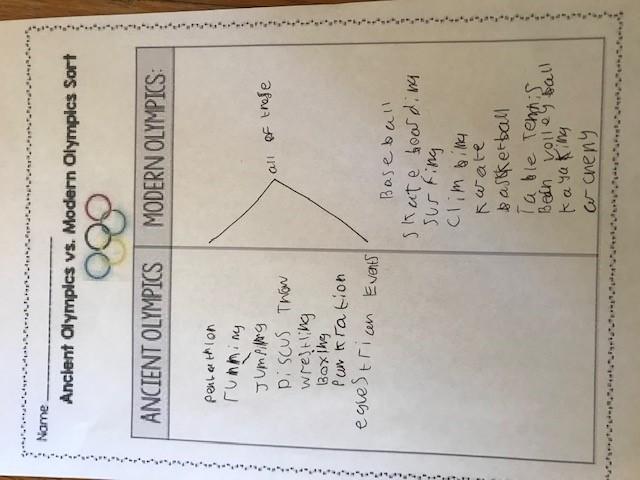 Name
Ancient Olympics vs. Modern Olympics Sort
ANCIENT OLYMPICS
MODERN OLYMPICS:
running
Jumping
Discus Thow
wrestling
Boxing
Pankration
equestrian Events
all of these
Baseball
Skate boarding
surfing
climbing
Karate
basketball
Table Tennis
Beah volley ball
Kayaking
archery